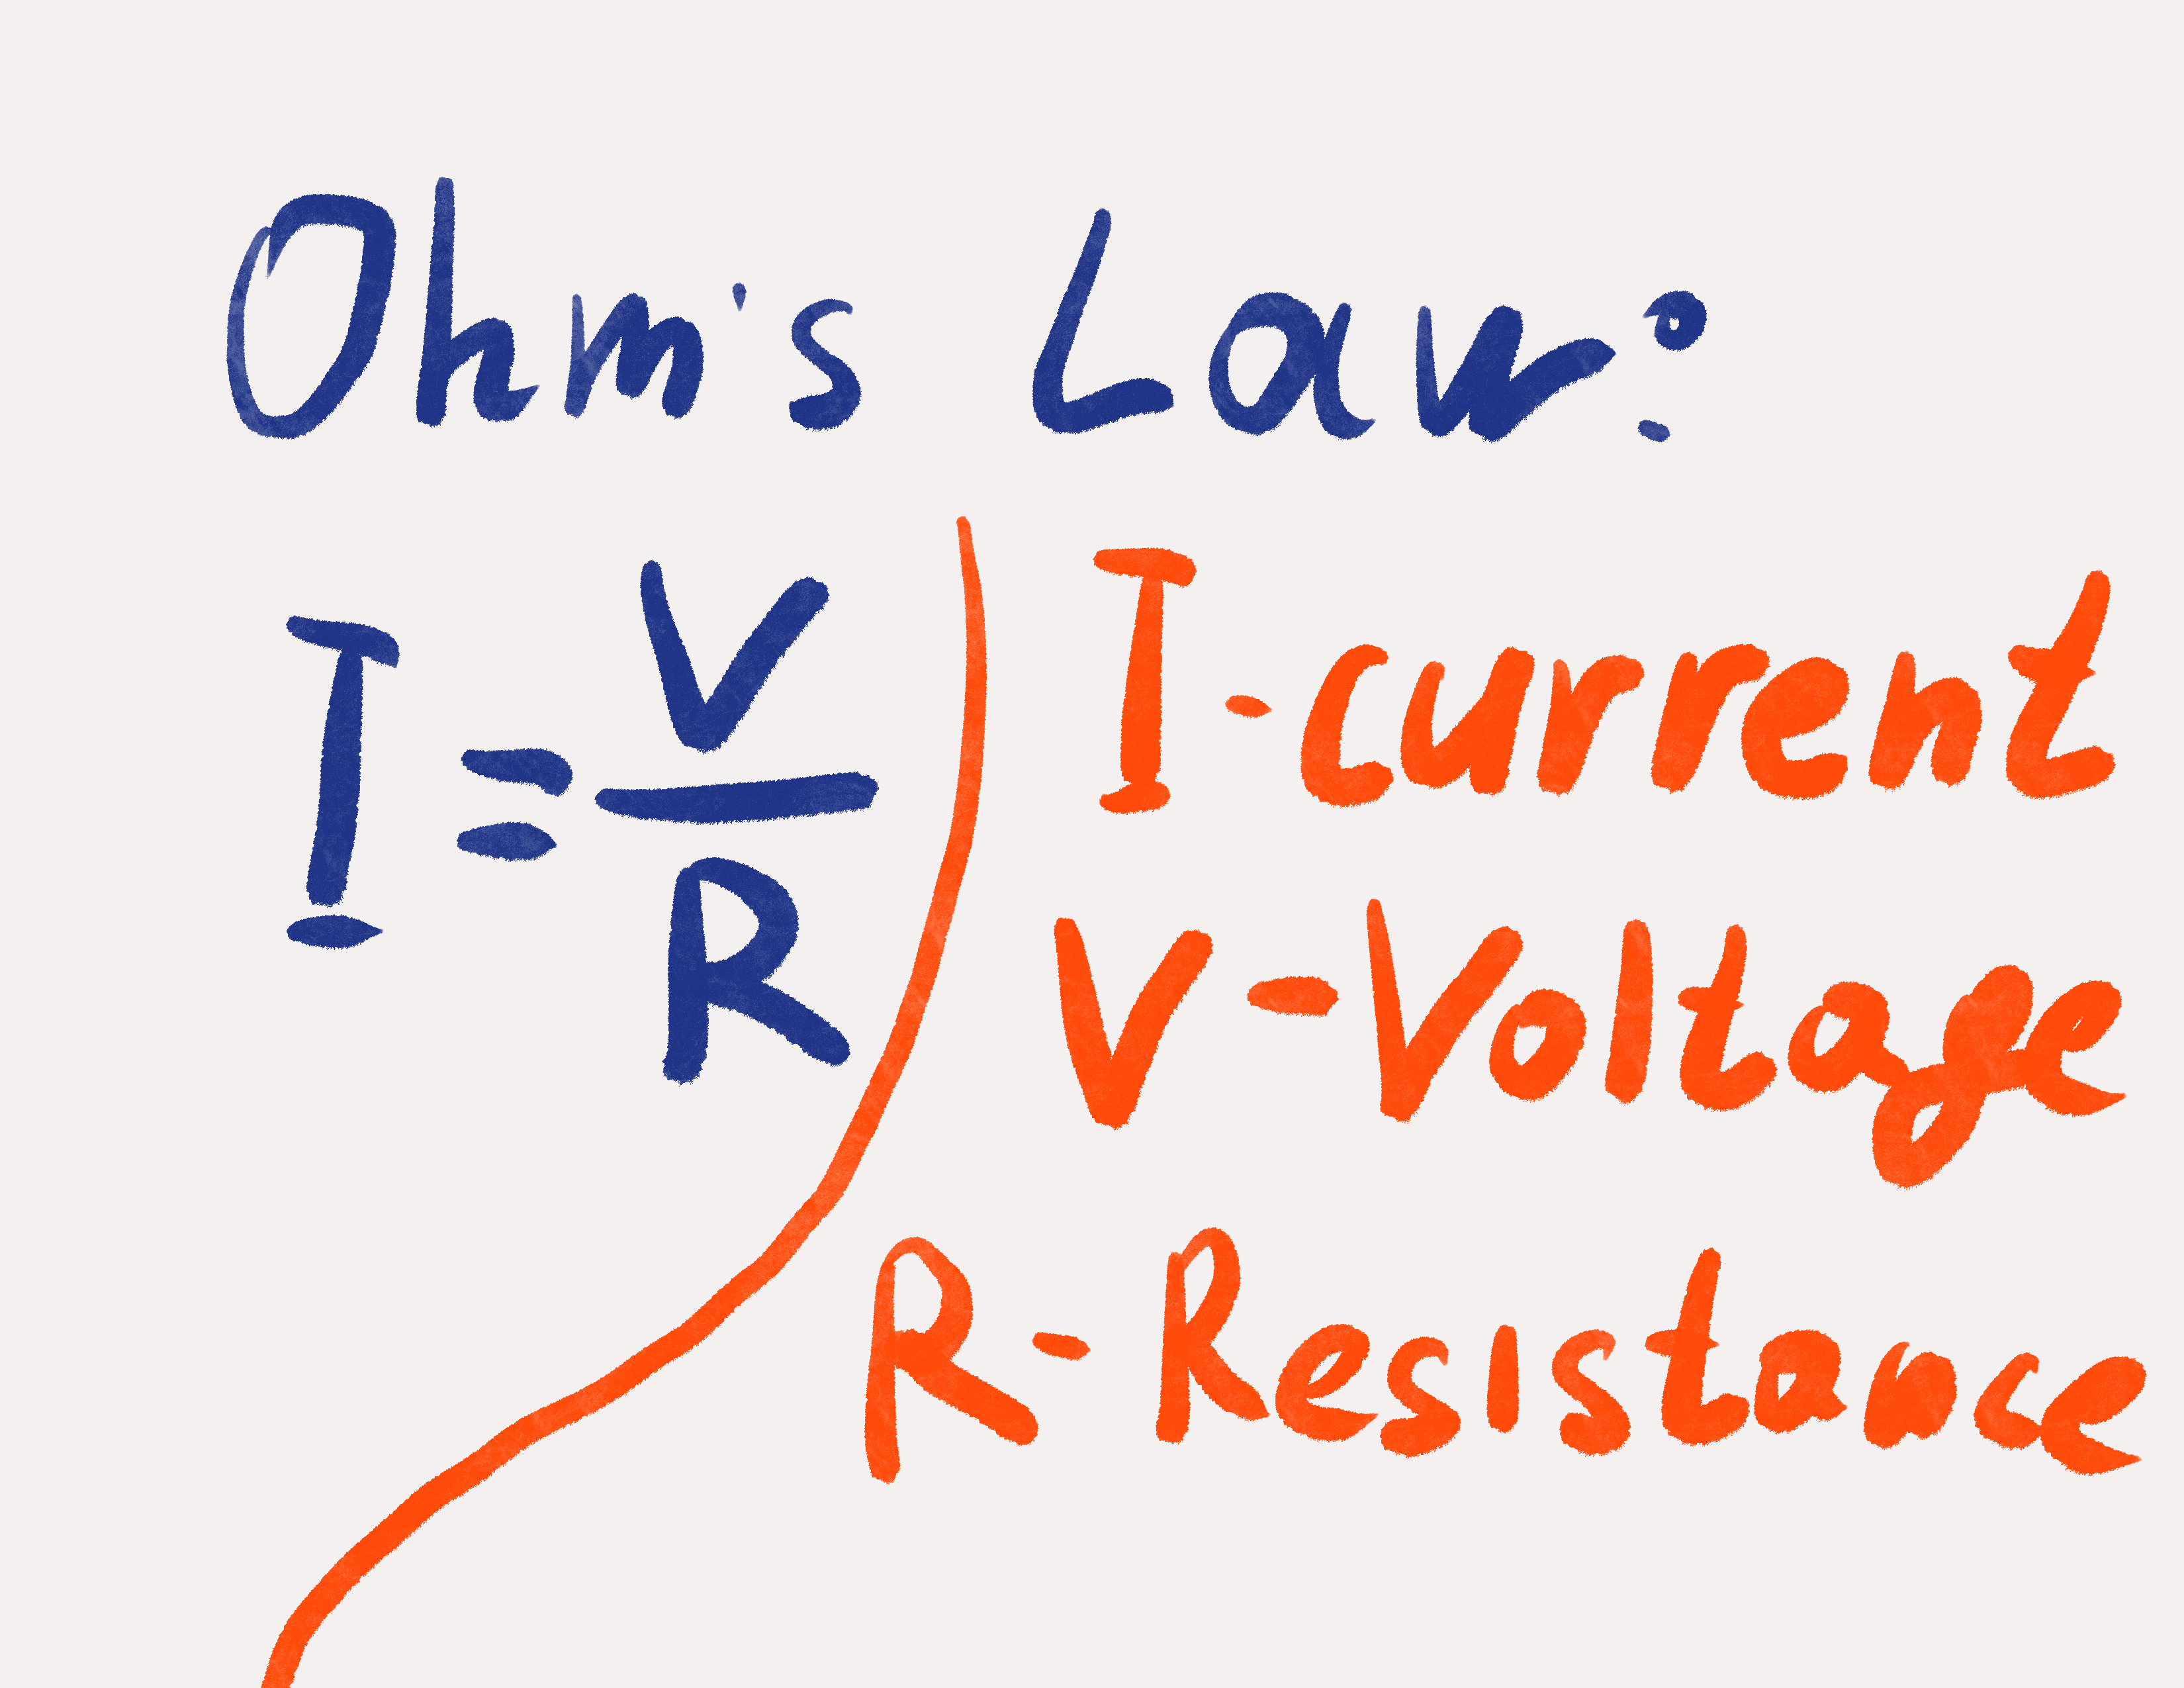 Ohm's Law:
I = V/R
I - current
V - Voltage
R - Resistance